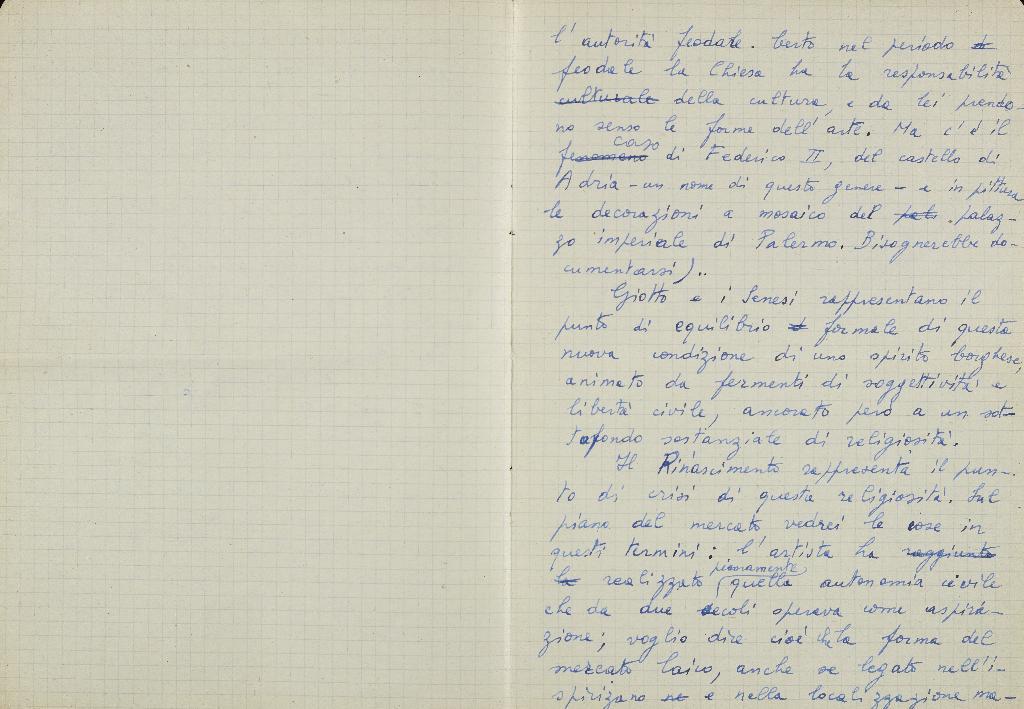 l'autorità feodale. Certo nel periodo
feodale la Chiesa ha la responsabilità
culturale della cultura, e da lei prendo-
no senso le forme dell'arte. Ma c'è il
caso
fenomeno di Federico II, del castello di
Adria - un nome di questo genere - e in pittura
le decorazioni a mosaico del palaz-
zo imperiale di Palermo. Bisognerebbe do-
cumentarsi)..
Giotto e i Senesi rappresentano il
punto di equilibrio formale di questa
nuova condizione di uno spirito borghese,
animato da fermenti di soggettività e
libertà civile, ancorato però a un sot-
tofondo sostanziale di religiosità.
Il Rinascimento rappresenta il pun-
to di crisi di questa religiosità. Sul
piano del mercato vedrei le cose in
questi termini: l'artista ha raggiunto
pienamente
la realizzato quella autonomia civile
che da due secoli sperava come aspira-
zione; voglio dire cioè che la forma del
mercato laico, anche se legato nell'i-
spirizano ne e nella localizzazione ma-